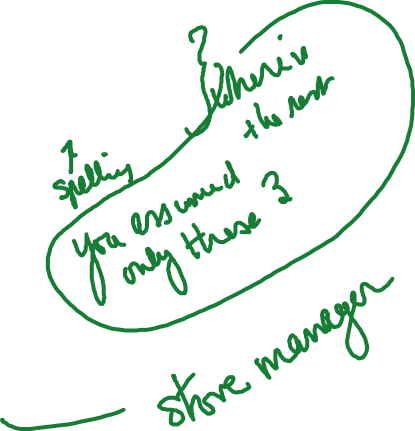 ?
where is
the rest
↑
spelling
you assumed
only these 3
store manager